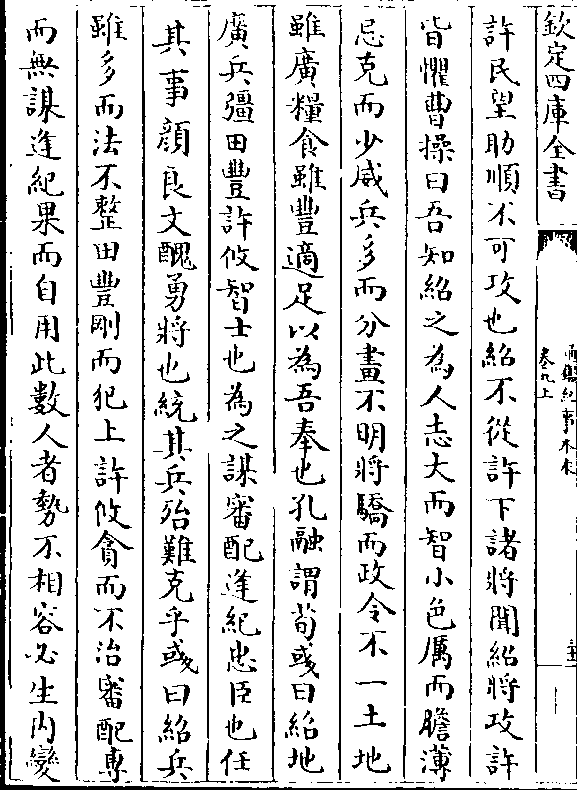 欽定四庫全書
通鑑紀事本末
卷九上
許民望助順不可攻也紹不從許下諸將聞紹將攻許
皆懼曹操曰吾知紹之為人志大而智小色厲而膽薄
忌克而少威兵多而分畫不明將驕而政令不一土地
雖廣糧食雖豐適足以為吾奉也孔融謂荀彧曰紹地
廣兵彊田豐許攸智士也為之謀審配逢紀忠臣也任
其事顔良文醜勇將也統其兵殆難克乎彧曰紹兵
雖多而法不整田豐剛而犯上許攸貪而不治審配專
而無謀逢紀果而自用此數人者勢不相容必生内變